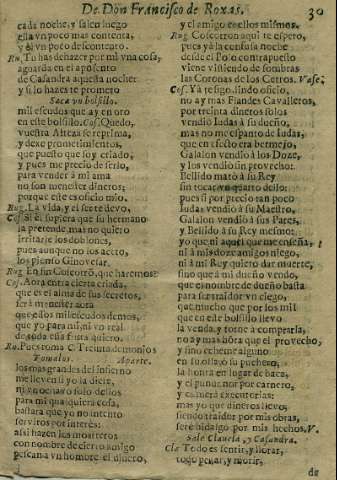 De Don Francisco de Roxas. 30
cada noche, y salen luego
ella vn poco mas contenta,
y el vn poco descontento.
Ru. Tu has de hazer por mi vna cosa,
aguarda en el aposento
de Casandra aquesta noche
y si lo hazes te prometo
Saca vn bolsillo.
mil escudos que ay en oro
en este bolsillo. Cos. Quedo,
vuestra Alteza se reprima,
y dexe prometimientos,
que puesto que soy criado,
y pues me precio de serlo,
para vender à mi ama
no son menester dineros;
porque este es oficio mio.
Rug. La vida, y el ser te devo,
Cos. Si él supiera que su hermano
la pretende, mas no quiero
irritarle los doblones,
pues aunque no los acero,
los siento Ginovefar.
Rug. En fin Coscorrõ, que haremos?
Cos. Aora entra cierta criada,
que es el alma de sus secretos,
serà menester aora
que essos mil escudos demos,
que yo para mi, ni vn real
de toda essa fuera quiero.
Ru. Pues toma C. Treinta demonios
Tomalos. Aparte.
los mas grandes del infierno
me lleven si yo la diere,
ni vn ochavo solo dellos
para mi quarquiera cosa,
bastarà que yo no intento
serviros por interès:
assi hazen los moatreros
con nombre de cierto amigo
pescan a vn hombre el dinero,
y el amigo es ellos mismos.
Rug. Coscorron aqui te espero,
pues yà la confusa noche
desde el Polo contrapuesto
viene vistiendo de sombras
las Coronas de los Cerros. Vase.
Cos. Yà tengo lindo oficio,
no ay mas Flandes Cavalleros,
por treinta dineros solos
vendiò Iudas à su dueño,
mas no me espanto de Iudas,
que en efecto era bermejo,
Galalon vendiò à los Doze,
y los vendiò sin provecho:
Bellido matò à su Rey
sin tocar vn quarto dello:
pues si por precio tan poco
Iudas vendiò à su Maestro,
Galalon vendiò à sus Pares,
y Bellido à su Rey mesmo:
yo que ni aqui que me enseña,
ni à mis doze amigos niego,
ni à mi Rey quiero dar muerte,
sino que à mi dueño vendo,
que es nombre de dueño basta
para ser traidor vn ciego,
que mucho que por los mil
que en este bolsillo llevo
la venda, y torne à comprarla,
no ay mas honra que el provecho,
y sino écheme alguno
en su olla, ò su puchero,
la honra en lugar de baca,
y el pundonor por carnero,
y comerà executorias:
mas yo que dineros llevo;
siendo traidor por mis obras,
serè hidalgo por mis hechos. V.
Sale Clavela, y Casandra.
Cla. Todo es sentir, y llorar,
todo penar, y morir,
de